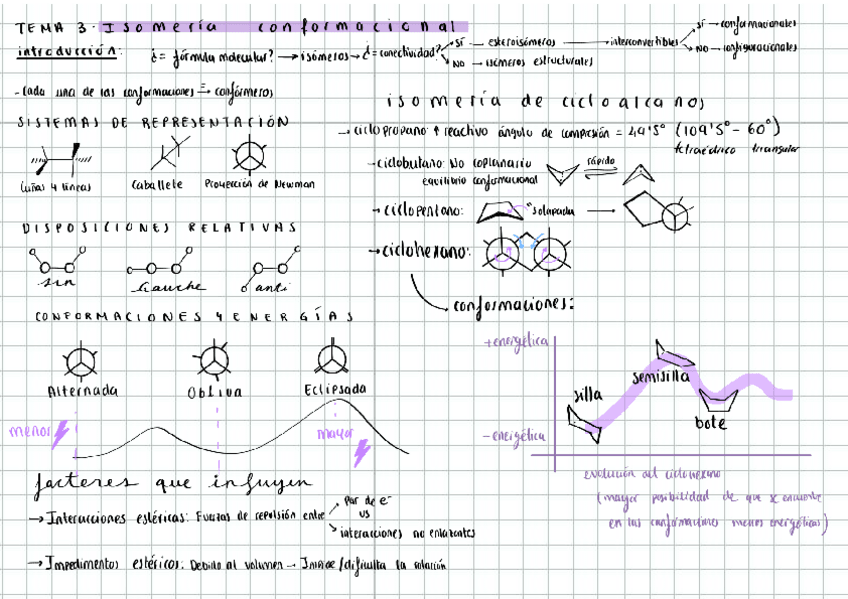 TEMA 3. Isomería conformacional
introducción: ¿= fórmula molecular? → isómeros → ¿= conectividad?
sí — esteroisómeros → interconvertibles
NO → isómeros estructurales
sí → conformacionales
NO → configuracionales
- Cada una de las conformaciones → confórmeros
SISTEMAS DE REPRESENTACIÓN
Cuñas y líneas
Caballete
Proyección de Newman
DISPOSICIONES RELATIVAS
sin
Gauche
anti
CONFORMACIONES Y ENERGÍAS
Alternada
Obliua
Eclipsada
menor
mayor
factores que influyen
→ Interacciones estéricas: Fuerzas de repulsión entre
par de e⁻
vs
interacciones no enlazantes
→ Impedimentos estéricos: Debido al volumen → Impide/dificulta la rotación
isomería de cicloalcanos
→ ciclopropano: ↑ reactivo ángulo de compresión = 49'5° (109'5° - 60°)
tetraédrico triangular
- ciclobutano: No coplanario
equilibrio conformacional
rápido
→ ciclopentano:
"solapada
→ ciclohexano:
conformaciones:
+ energética
- energética
silla
semisilla
bote
evolución del ciclohexano
(mayor posibilidad de que se encuentre
en las conformaciones menos energéticas)